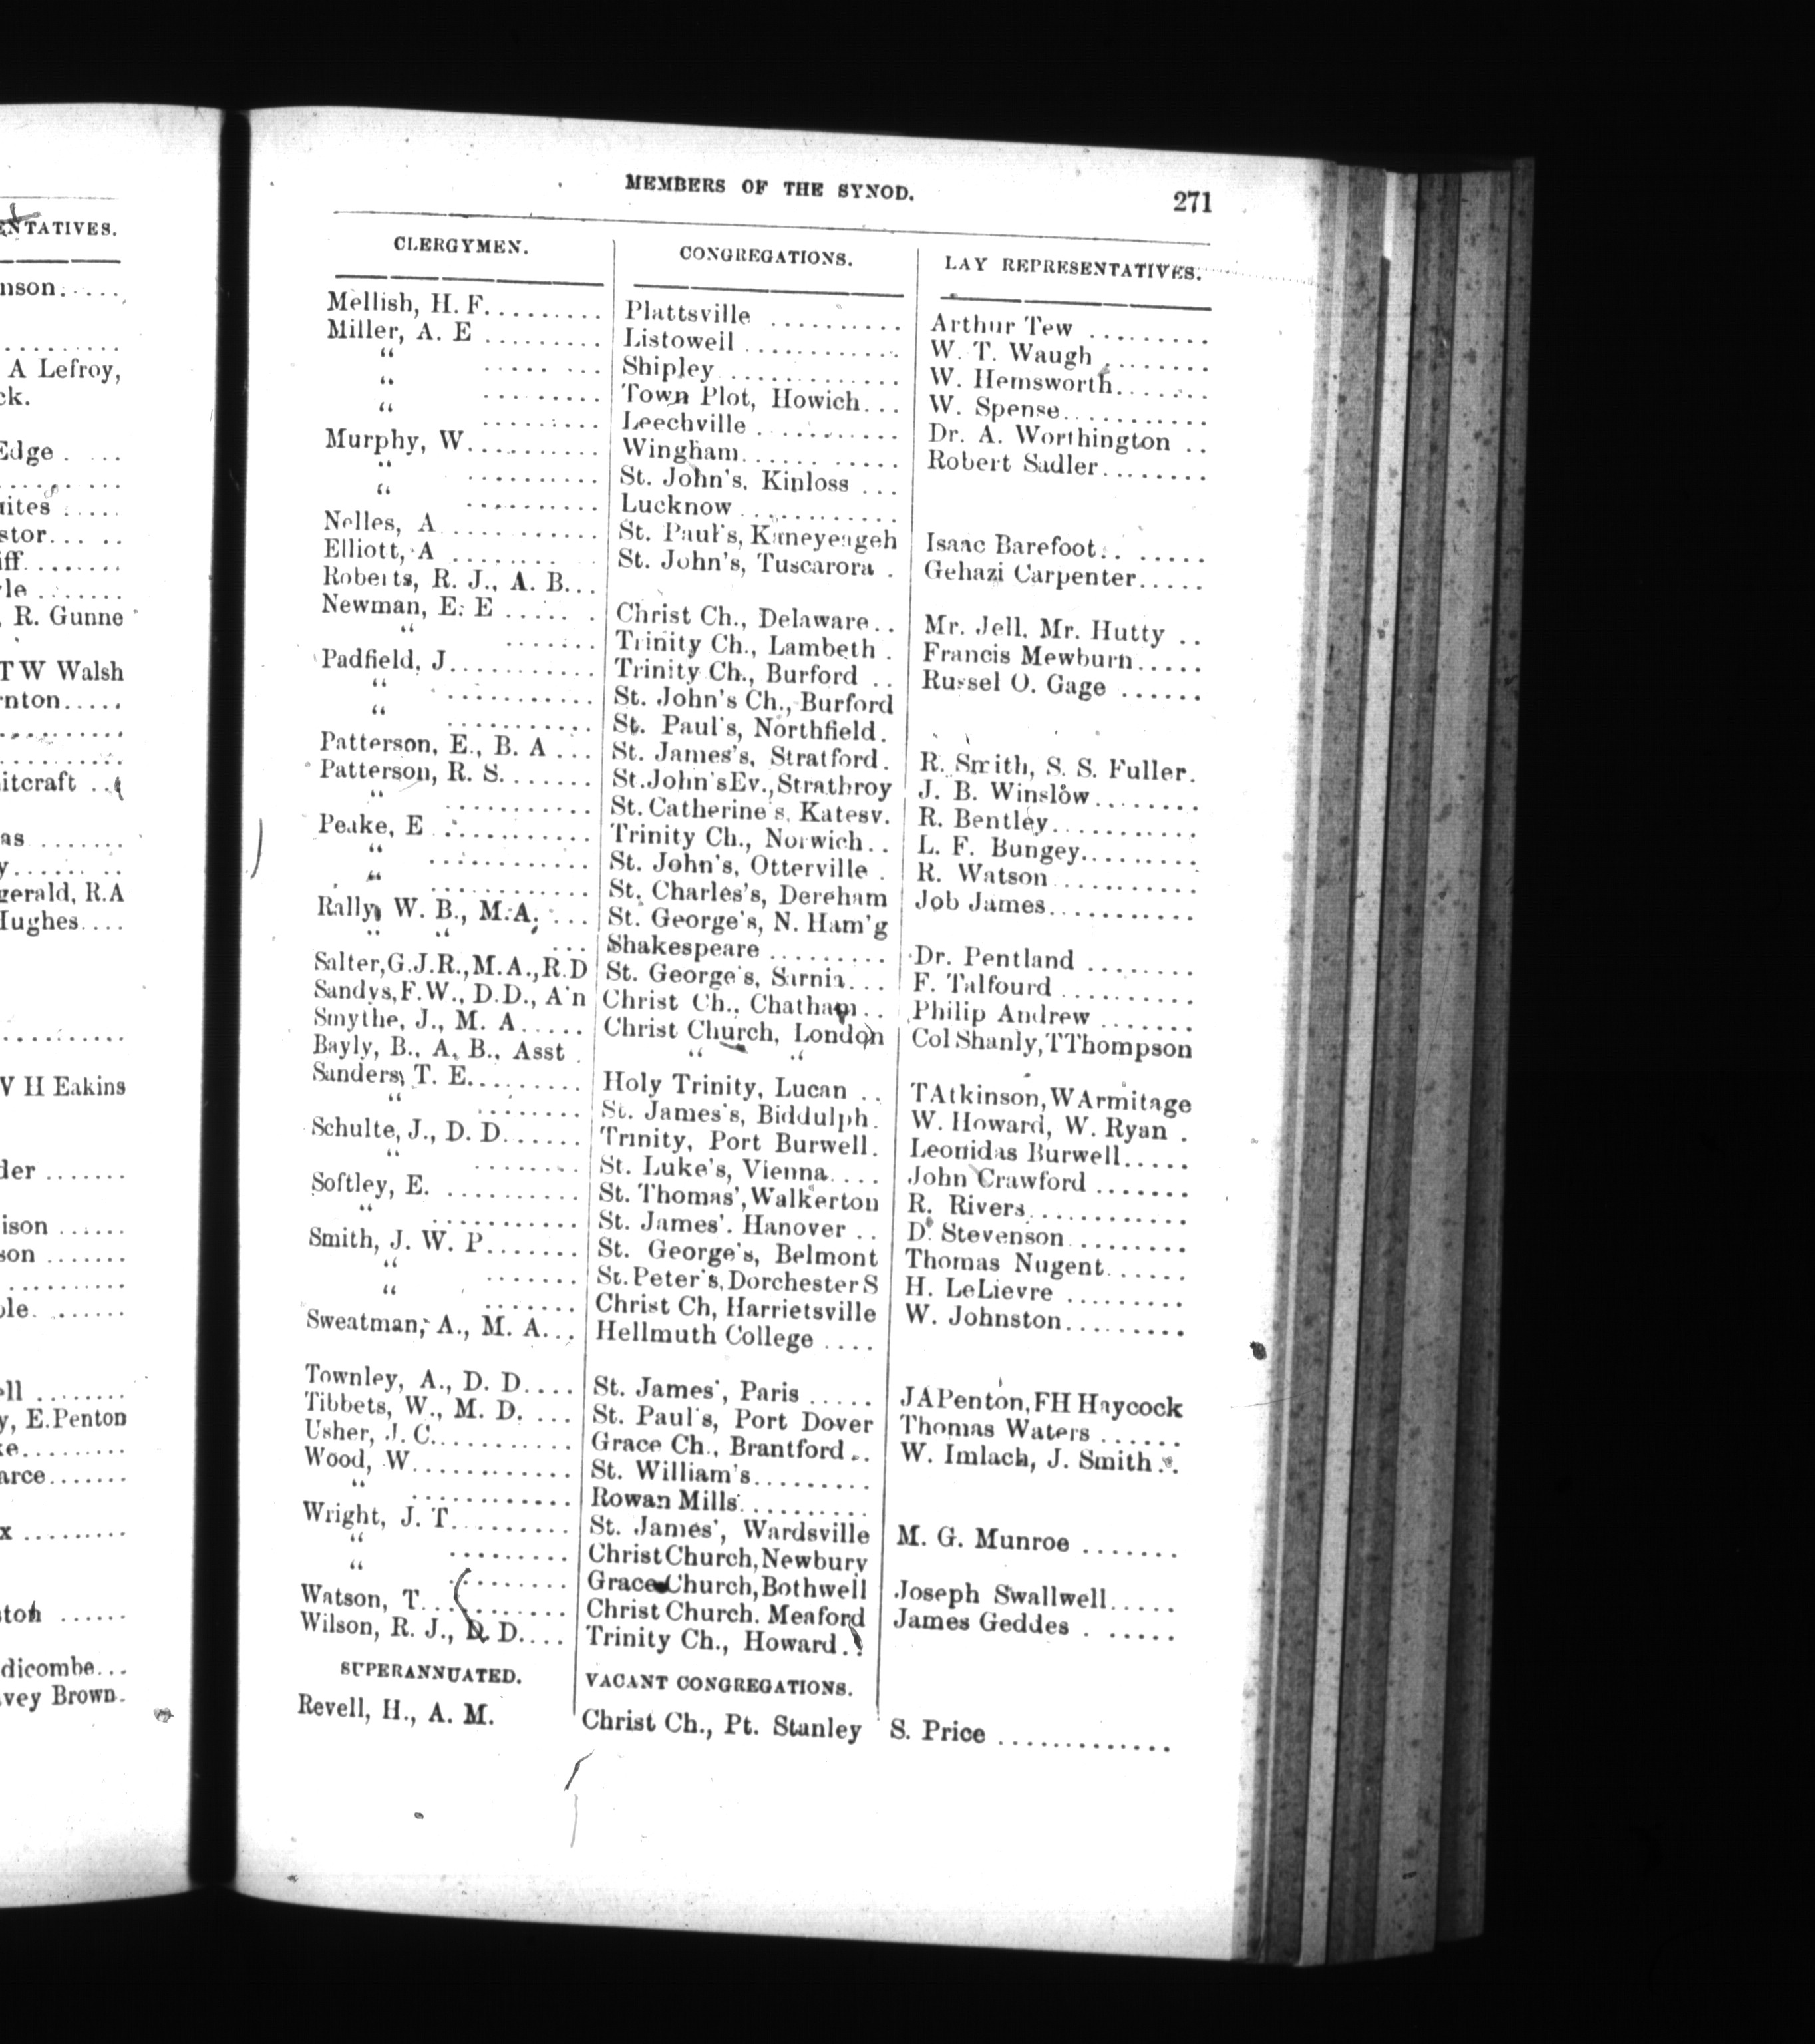 ENTATIVES.
nson.....
A Lefroy,
ck.
Edge . ...
uites .....
stor... ..
iff........
rle .......
, R. Gunne
T W Walsh
rnton.....
itcraft ..
as ........
y...... ..
gerald, R.A
Hughes....
V H Eakins
der .......
ison ......
son .......
ole. ......
ell ........
y, E.Penton
ke.........
arce.......
x .........
ston ......
dicombe...
vey Brown.
MEMBERS OF THE SYNOD. 271
CLERGYMEN. CONGREGATIONS. LAY REPRESENTATIVES.
Mellish, H. F......... Plattsville .......... Arthur Tew .........
Miller, A. E ......... Listowell ............ W. T. Waugh ........
" ..... ... Shipley ............. W. Hemsworth.......
" ......... Town Plot, Howich... W. Spense...........
" ......... Leechville .......... Dr. A. Worthington ..
Murphy, W.......... Wingham...... ..... Robert Sadler........
" .......... St. John's, Kinloss ...
" .......... Lucknow ............
Nelles, A ............ St. Paul's, Kaneyeageh Isaac Barefoot.. .....
Elliott, A .......... St. John's, Tuscarora . Gehazi Carpenter.....
Roberts, R. J., A. B...
Newman, E. E ..... . Christ Ch., Delaware.. Mr. Jell, Mr. Hutty ..
" ....... Trinity Ch., Lambeth . Francis Mewburn.....
Padfield, J........... Trinity Ch., Burford .. Russel O. Gage ......
" ............ St. John's Ch., Burford
" ............ St. Paul's, Northfield.
Patterson, E., B. A ... St. James's, Stratford. R. Smith, S. S. Fuller.
Patterson, R. S....... St.John'sEv.,Strathroy J. B. Winslow........
" ............ St. Catherine's, Katesv. R. Bentley...........
Peake, E ............ Trinity Ch., Norwich.. L. F. Bungey.........
" ............. St. John's, Otterville . R. Watson...........
" ............ St. Charles's, Dereham Job James...........
Rally, W. B., M.A. ... St. George's, N. Ham'g
" " ... Shakespeare ......... Dr. Pentland ........
Salter,G.J.R.,M.A.,R.D St. George's, Sarnia... F. Talfourd ..........
Sandys,F.W., D.D., A'n Christ Ch., Chatham.. Philip Andrew .......
Smythe, J., M. A..... Christ Church, London Col Shanly,TThompson
Bayly, B., A. B., Asst . " "
Sanders, T. E......... Holy Trinity, Lucan .. TAtkinson,WArmitage
" ........ St. James's, Biddulph. W. Howard, W. Ryan .
Schulte, J., D. D...... Trinity, Port Burwell. Leonidas Burwell.....
" ........ St. Luke's, Vienna.... John Crawford .......
Softley, E. .......... St. Thomas',Walkerton R. Rivers............
" ........... St. James'. Hanover .. D. Stevenson.........
Smith, J. W. P....... St. George's, Belmont Thomas Nugent......
" ....... St.Peter's,DorchesterS H. LeLievre .........
" ....... Christ Ch, Harrietsville W. Johnston.........
Sweatman, A., M. A... Hellmuth College ....
Townley, A., D. D.... St. James', Paris ..... JAPenton,FH Haycock
Tibbets, W., M. D. ... St. Paul's, Port Dover Thomas Waters ......
Usher, J. C........... Grace Ch., Brantford .. W. Imlach, J. Smith ..
Wood, W............ St. William's.........
" ............ Rowan Mills..........
Wright, J. T......... St. James', Wardsville M. G. Munroe .......
" ......... Christ Church,Newbury
" ......... Grace Church,Bothwell Joseph Swallwell.....
Watson, T........... Christ Church. Meaford James Geddes . .....
Wilson, R. J., D. D.... Trinity Ch., Howard..
SUPERANNUATED. VACANT CONGREGATIONS.
Revell, H., A. M. Christ Ch., Pt. Stanley S. Price .............